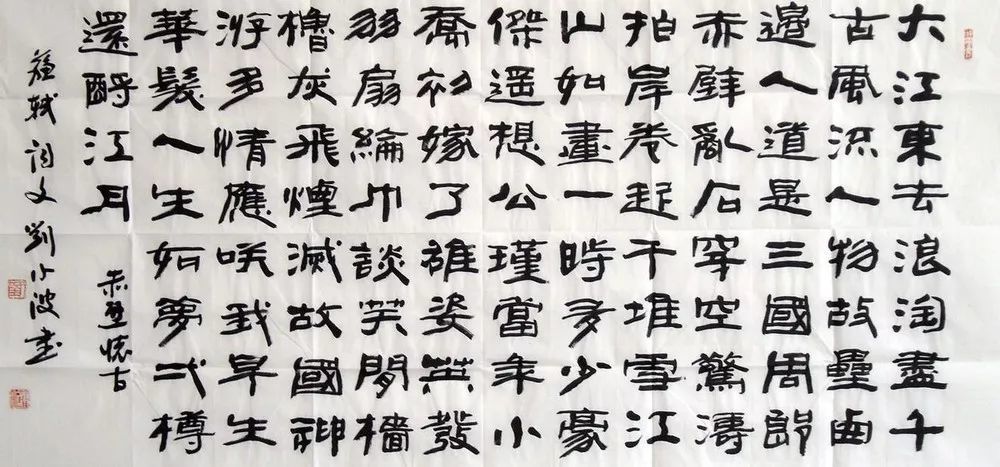 大江東去浪淘盡千
古風流人物故壘西
邊人道是三國周郎
赤壁亂石穿空驚濤
拍岸卷起千堆雪江
山如畫一時多少豪
傑遥想公瑾當年小
喬初嫁了雄姿英發
羽扇綸巾談笑間檣
櫓灰飛煙滅故國神
游多情應咲我早生
華髮人生如夢弌樽
還酹江月
赤壁懷古
蘇軾詞文劉小波書